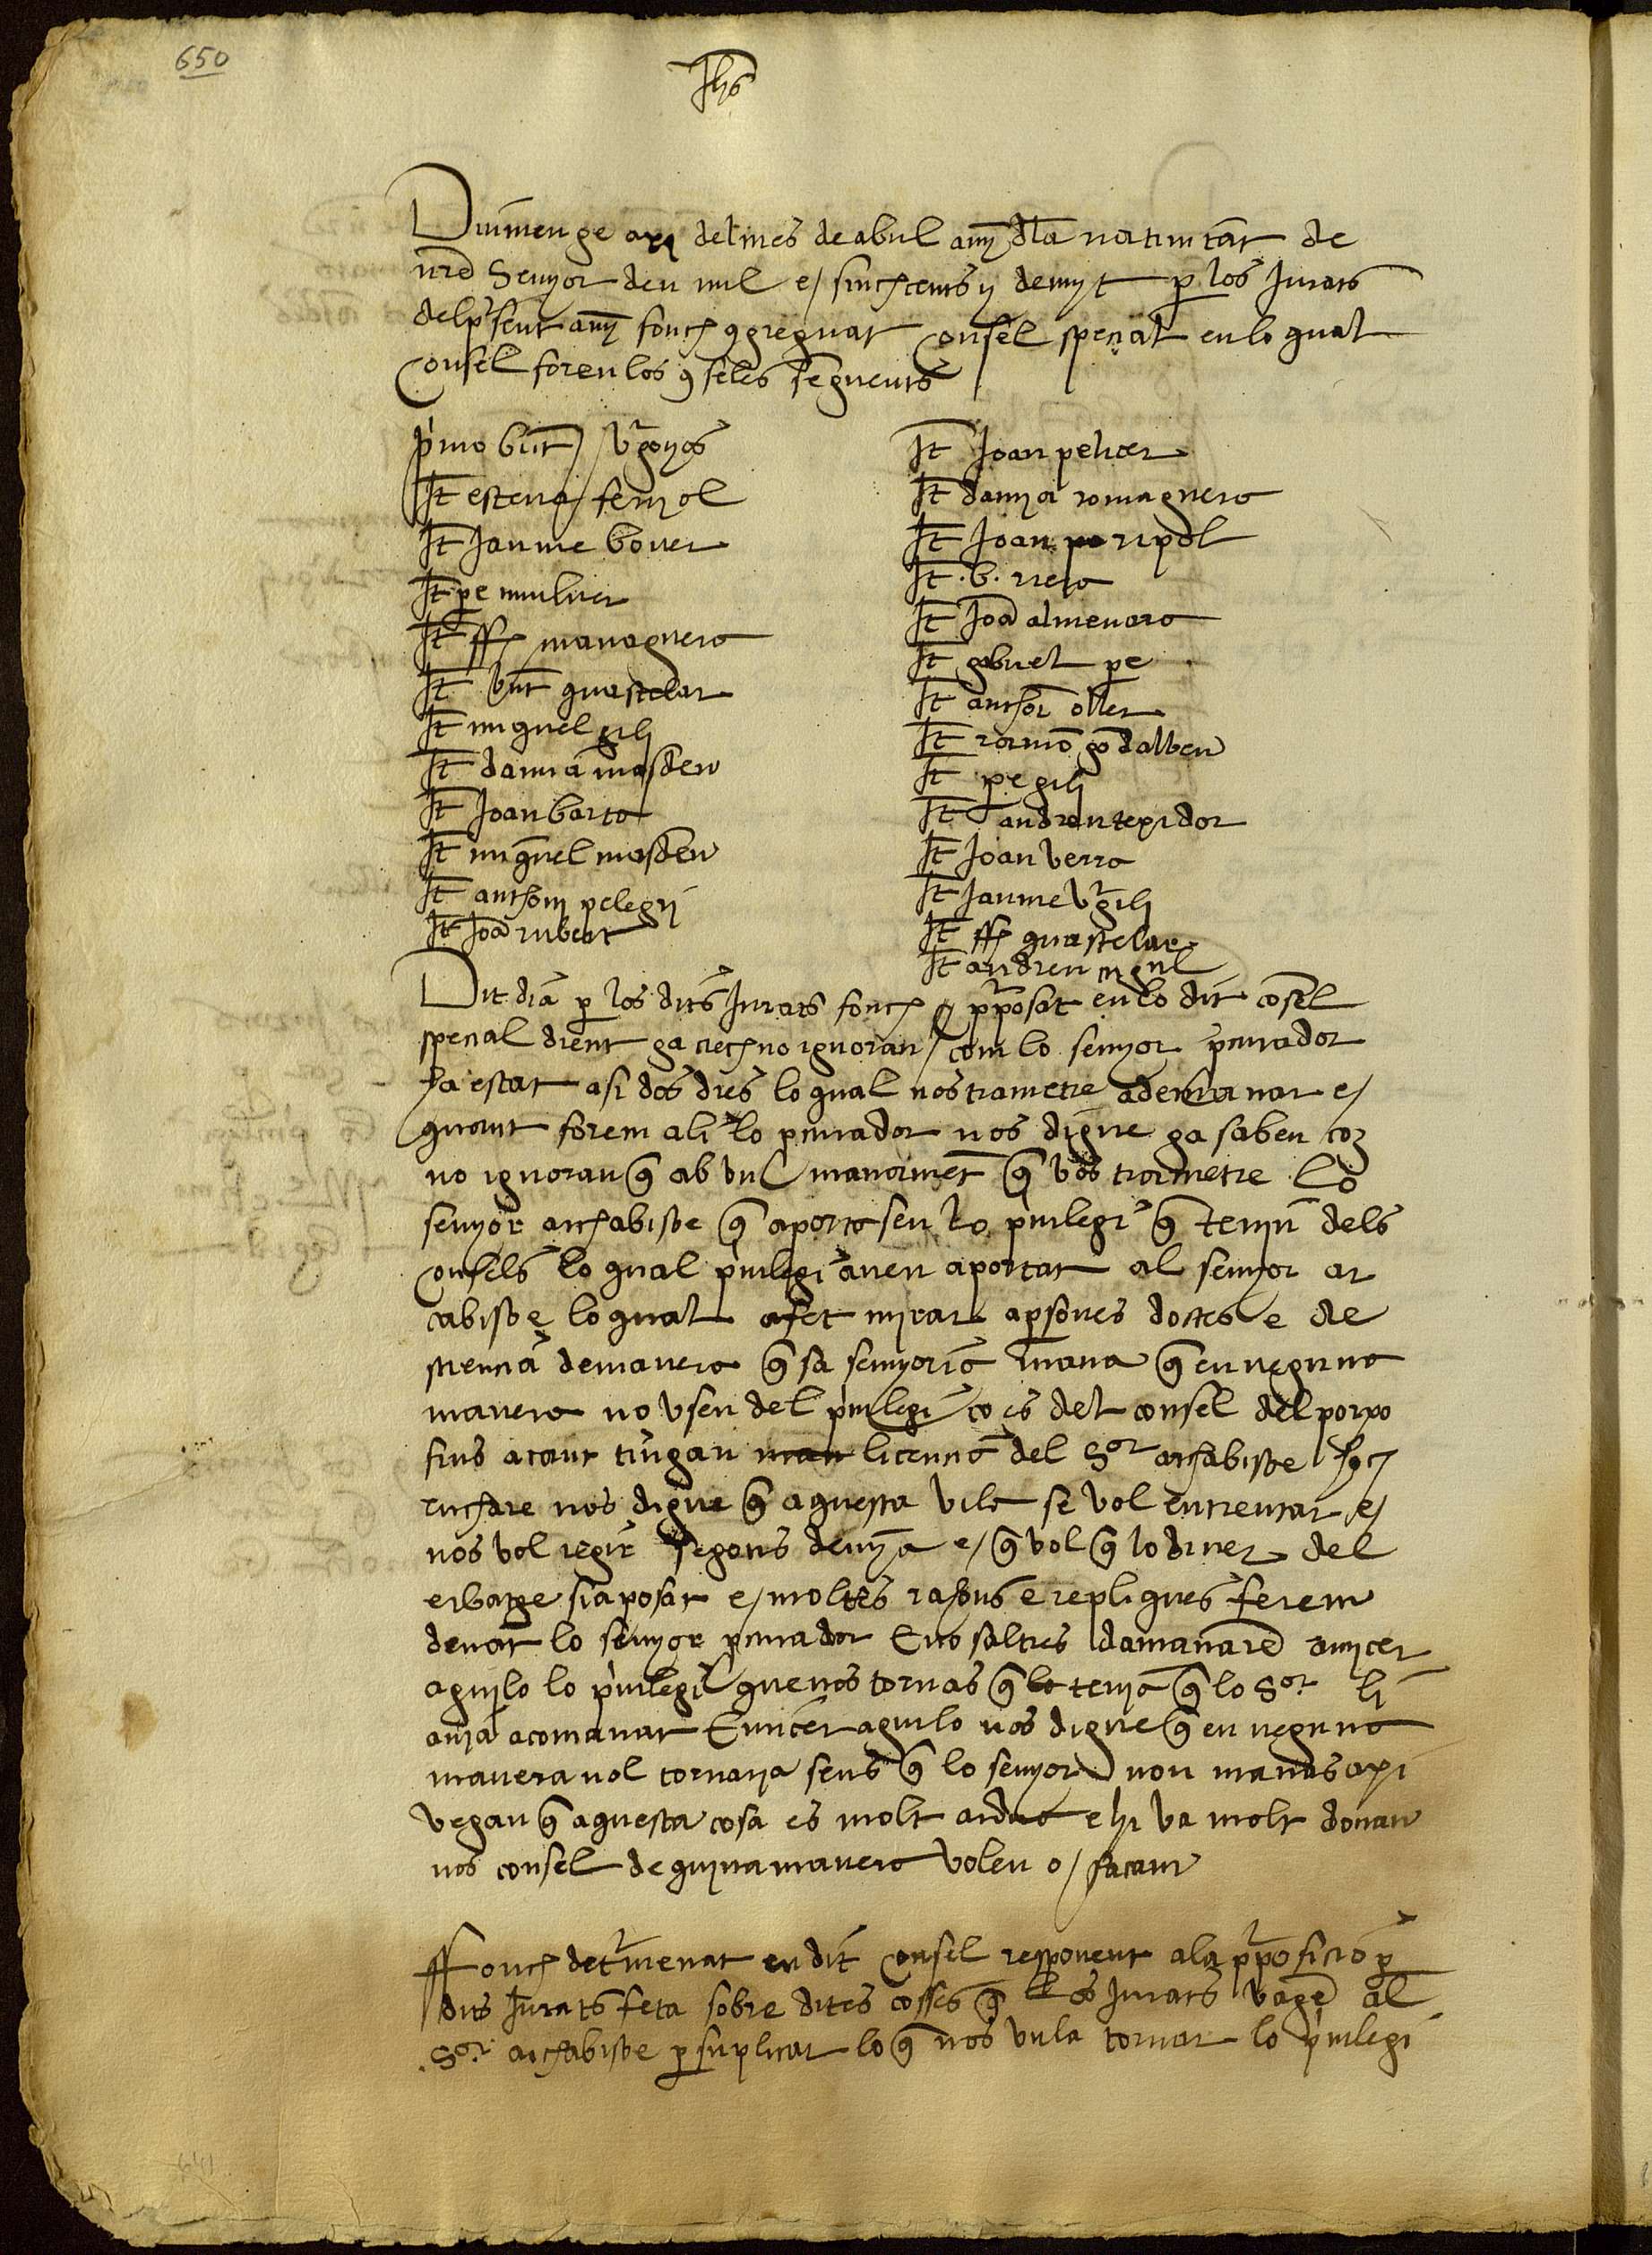 650
Jhs
Diumenge a xi del mes de abril any dla natiuitat de
nre Senyor deu mil e sinchcents y de myt p los Jurats
del psent any fonch 9greguat Consel special en lo qual
Consel foren los 9sles seguents
pmo bnt Vrgonyos
It esteua fenyol
It Jaume bouer
It pe munluer
It ff managuera
It bnt guastelar
It miguel gili
It damia masdeu
It Joan barto
It miguel masdeu
It anthoni pelegri
It Joa rubert
It Joan pelicer
It damya romaguera
It Joan ripol
It .b. riera
It Joa almenara
It gabriel pe
It anthoni oller
It ramo godalbeu
It pe gili
It andreu texidor
It Joan verra
It Jaume Vrgili
It ff guastelar
It andreu
Dit dia p los dits Jurats fonch pposat en lo dit cosel
special dient ga crech no ignoran com lo senyor pcurador
ha estat asi dos dies lo qual nos trametre a demanar e
quant forem ali lo pcurador nos digue ga saben co
no ignoran q ab vn manament q vos trametre lo
senyor archabisbe q aportasen lo priuilegi q teniu dels
Consels lo qual priuilegi auen aportat al senyor ar
cabisbe lo qual a fet mirar a psones doctes e de
sciencia de manera q sa senyoria mana q en neguna
manera no vsen del priuilegi co es del consel del porxo
fins atant tingan man licencia del Sor archabisbe
encare nos digue q aquesta vila se vol entrentar e
nos vol regir segons devya e q vol q lo diner del
erbatge sia posat e moltes rahons e repliques ferem
deuat lo senyor pcurador E nosaltres damanare a mycer
aguilo lo priuilegi que nos tornas q lo tenia q lo Sor li
auia acomanat E micer aguilo nos digue q en neguna
manera nol tornaria sens q lo senyor non manas axi
vegan q aquesta cosa es molt ardua e hi va molt donau
nos consel de quina manera volen o facam
Ffonch determenat en dit Consel responent ala pposicio p
dits Jurats feta sobre dites cosses q los Jurats vage al
.Sor archabisbe p suplicar lo q nos vula tornar lo priuilegi